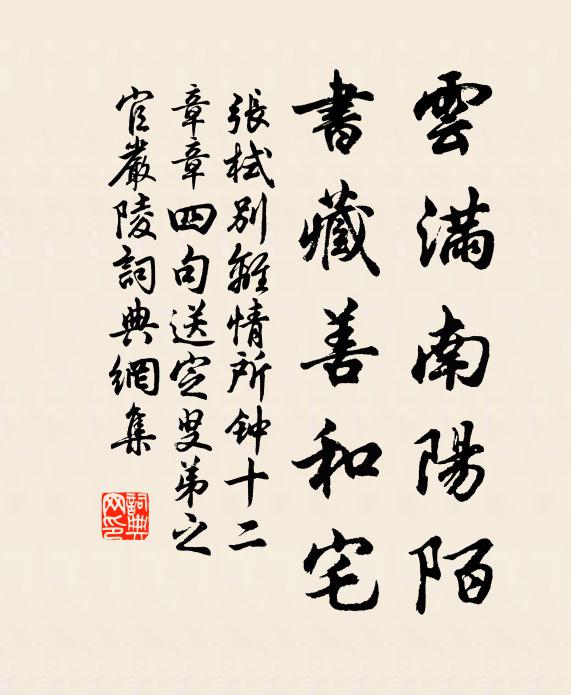 雲滿南陽陌
書藏善和宅
張栻別離情所钟十二
章章四句送定叟弟之
官嚴陵詞典網集
詞典
网印